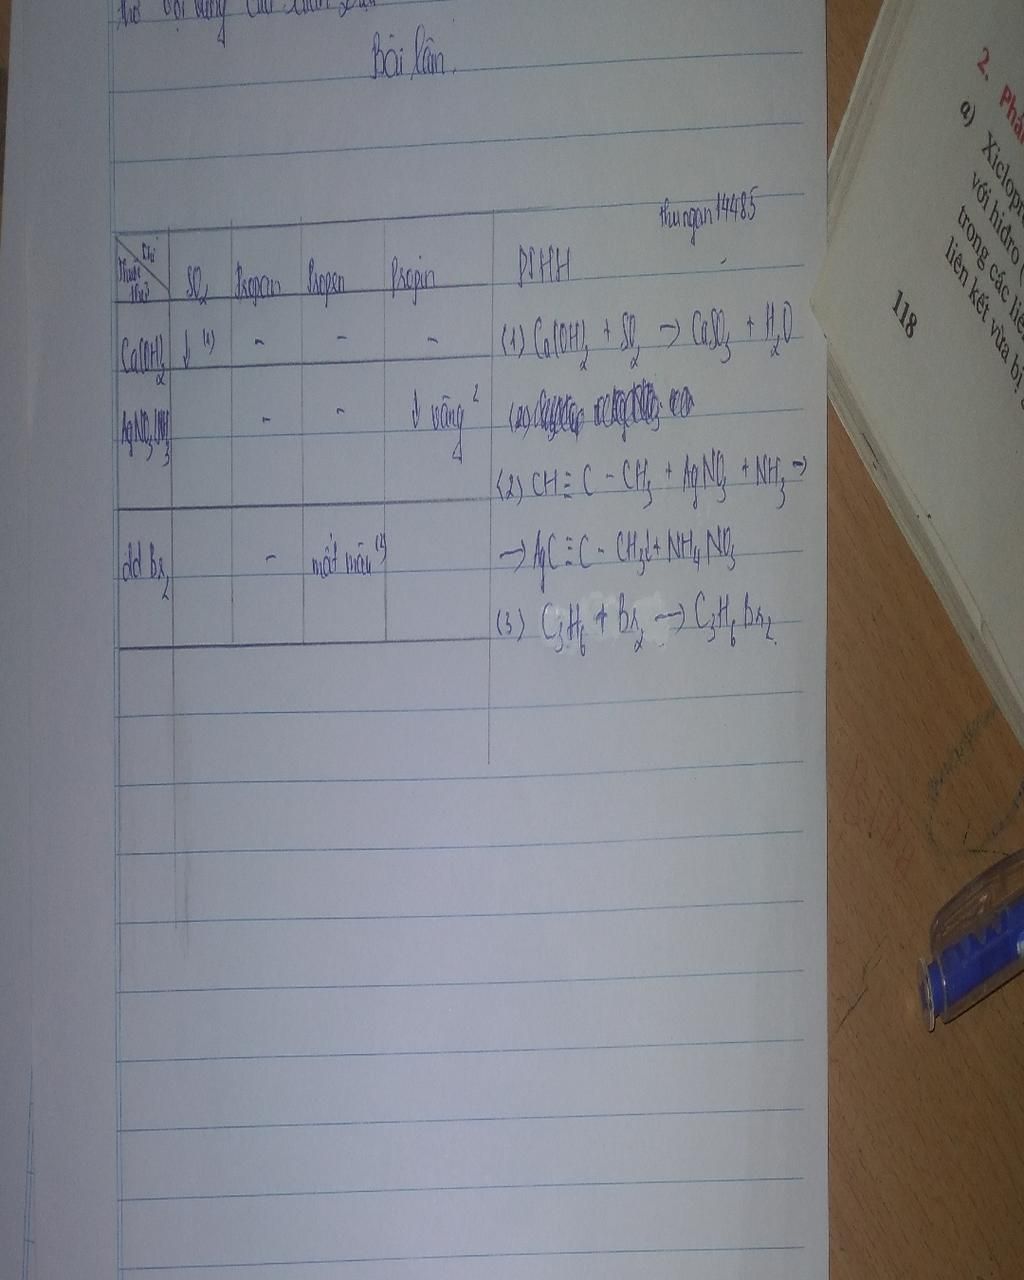 Bài làm.
thungan14485
Khí
Thuốc thử
SO2 Propan Propen Propin PTHH
Ca(OH)2 ↓ (1) - - - (1) Ca(OH)2 + SO2 → CaSO3 + H2O
AgNO3/NH3 - - ↓ vàng 2 (2)
(2) CH≡C - CH3 + AgNO3 + NH3 →
→ AgC≡C - CH3↓ + NH4NO3
dd Br2 - mất màu
(3) C3H6 + Br2 → C3H6Br2
2. Phả
a) Xiclopr
với hiđro (
trong các liê
liên kết vừa bị
118